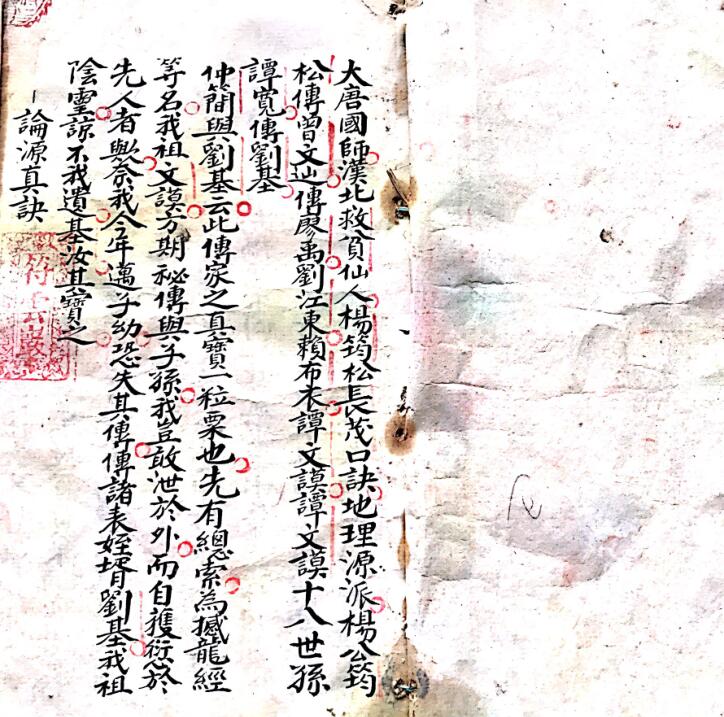 大唐國師漢北救貧仙人楊筠松長茂口訣地理源派楊公筠
松傳曾文辿傳廖禹劉江東賴布衣譚文謨譚文謨十八世孫
譚寬傳劉基
仲簡與劉基云此傳家之真寶一粒粟也先有總索為撼龍經
等名我祖文謨方期秘傳與子孫我豈敢泄於外而自獲愆於
先人者歟奈我今年邁子幼恐失其傳傳諸表姪壻劉基我祖
陰靈諒不我遺基汝其寶之
一論源真訣